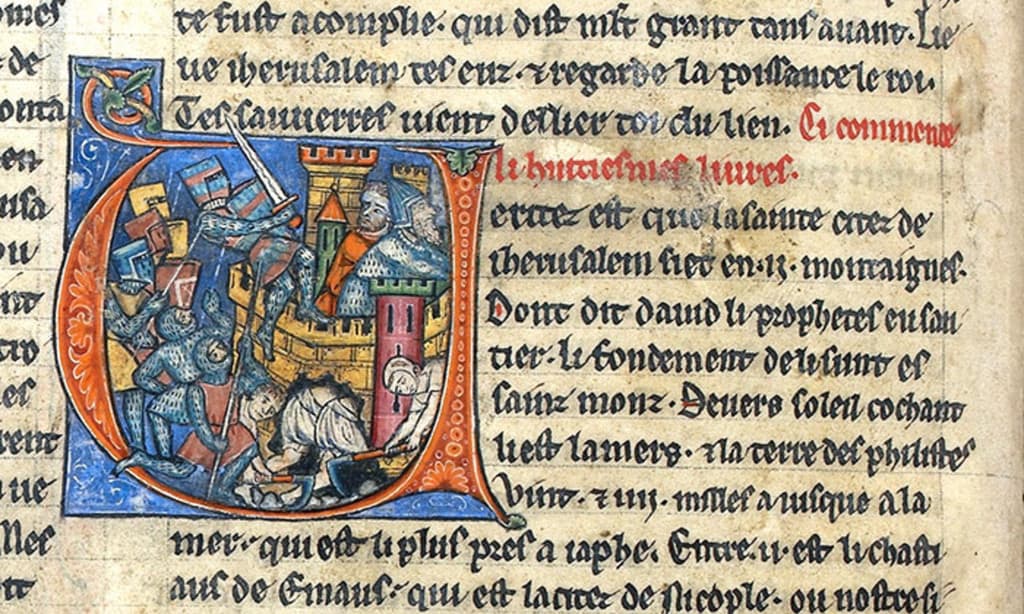 te fust acomplie. qui dist mlt grant tans auant. Lie
ue iherusalem tes euz. ⁊ regarde la poissance le roi.
Tes sauuerres uient deslier toi du lien. Ci commence
li huitiesmes liures.
eritez est que la sainte citez de
iherusalem siet en .ii. montaignes.
Dont dit dauid li prophetes en sau
tier. li fondement de li sunt es
sainz monz. Deuers soleil cochant
li est la mers. ⁊ la terre des philistes
Vint. ⁊ iiii. milles a iusque a la
mer. qui est li plus pres a iaphe. Entre .ii. est li chasti
aus de Emaus. qui est la citez de Nicople. ou nostres